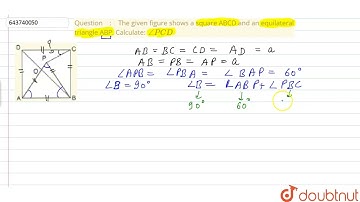 643740050
Question : The given figure shows a square ABCD and an equilateral
triangle ABP. Calculate: ∠PCD
AB = BC = CD = AD = a
AB = PB = AP = a
∠APB = ∠PBA = ∠BAP = 60°
∠B = 90° ∠B = ∠ABP + ∠PBC
90° 60°
D C
P
O
A B
doubtnut